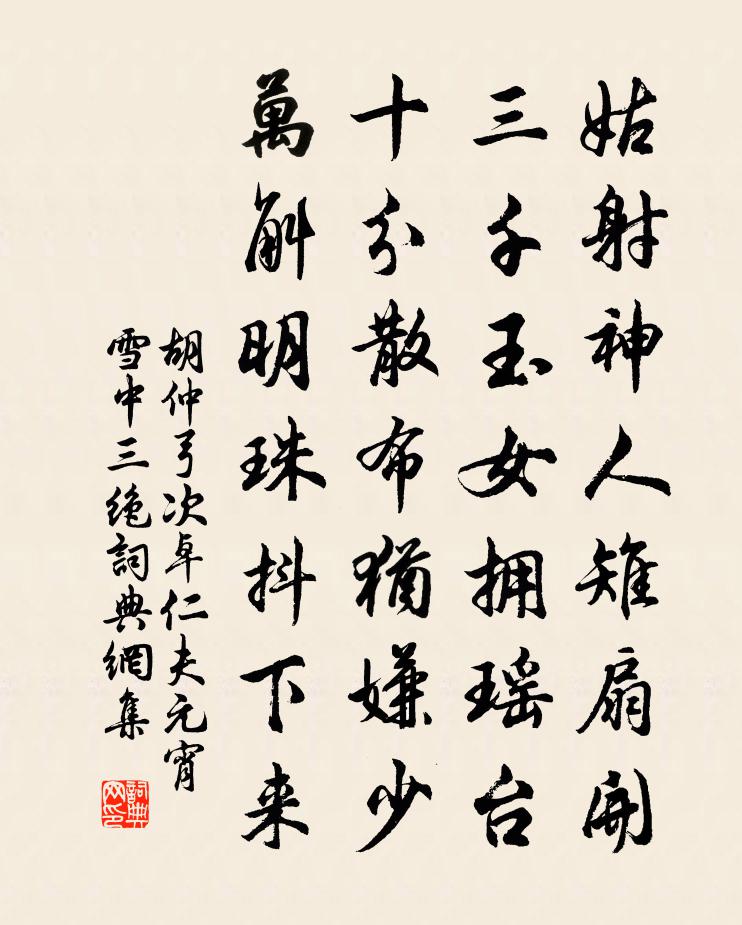 姑射神人雉扇開
三千玉女拥瑶台
十分散布猶嫌少
萬斛明珠抖下来
胡仲弓次卓仁夫元宵
雪中三絕詞典網集
詞典
网印